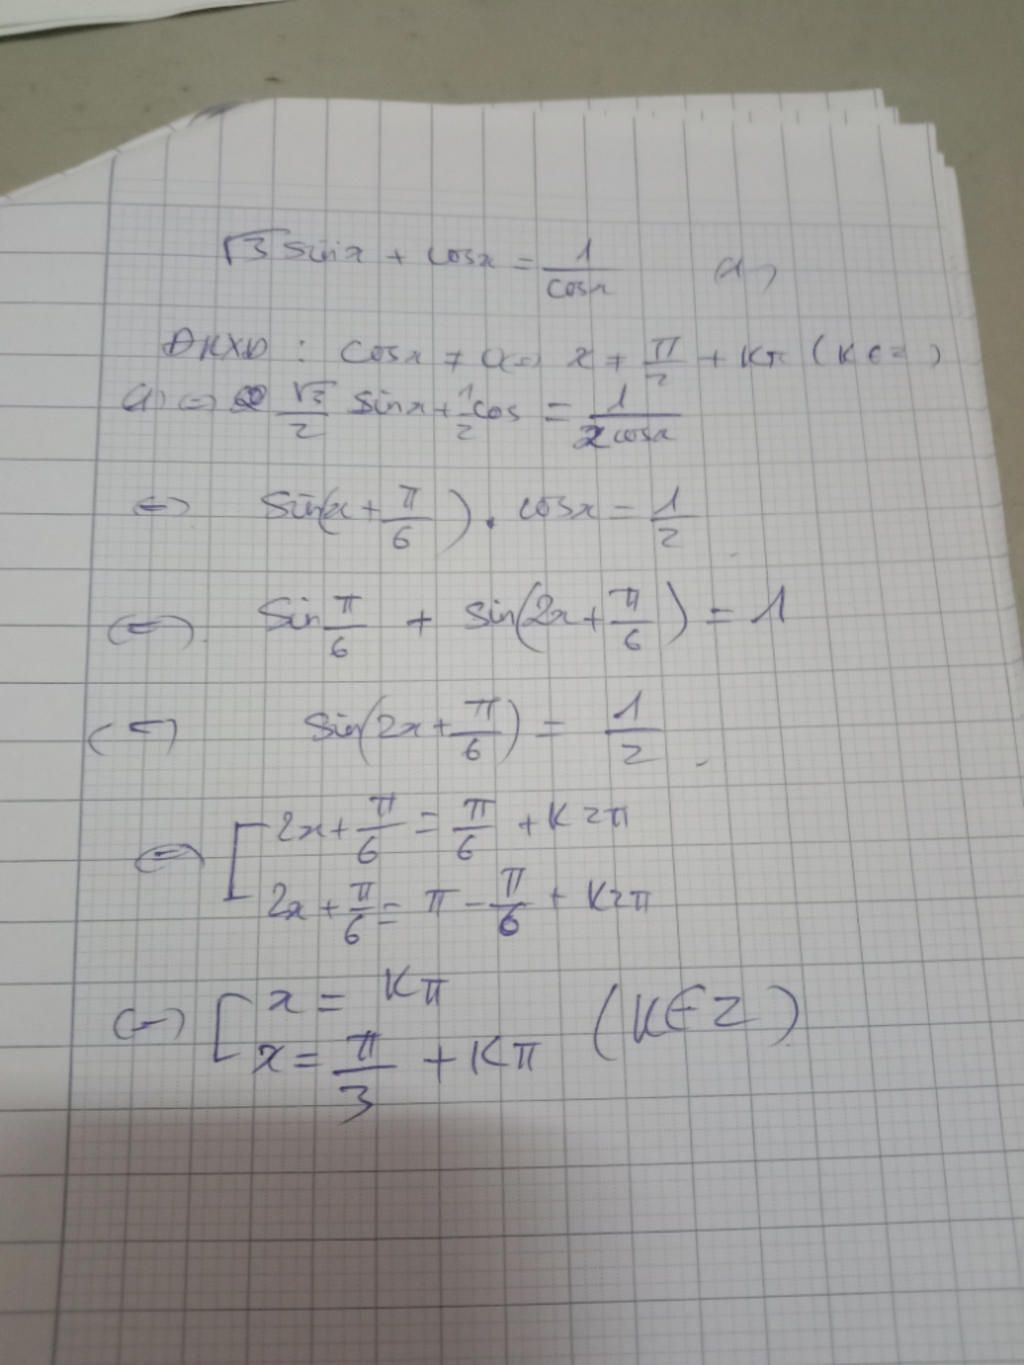 √3 sinx + cosx = 1/cosx (1)
ĐKXĐ : cosx ≠ 0 ⇔ x ≠ π/2 + kπ (k ∈ Z)
(1) ⇔ √3/2 sinx + 1/2 cos = 1/2cosx
⇔ sin(x + π/6) . cosx = 1/2
⇔ sin π/6 + sin(2x + π/6) = 1
⇔ sin(2x + π/6) = 1/2
⇔ [ 2x + π/6 = π/6 + k2π
2x + π/6 = π - π/6 + k2π
⇔ [ x = kπ
x = π/3 + kπ (k ∈ Z)